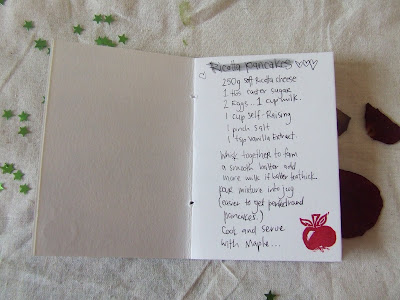 Ricotta Pancakes
250g soft Ricotta cheese
1 tbs caster sugar
2 Eggs... 1 cup milk.
1 cup Self-Raising
1 pinch salt
1 tsp Vanilla Extract.
Whisk together to form
a smooth batter add
more milk if batter too thick.
pour mixture into jug
(easier to get perfect round
pancakes.)
Cook and serve
with Maple...